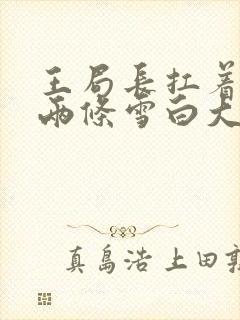 王局長扛着
兩條雪白大
真島浩 上田敦